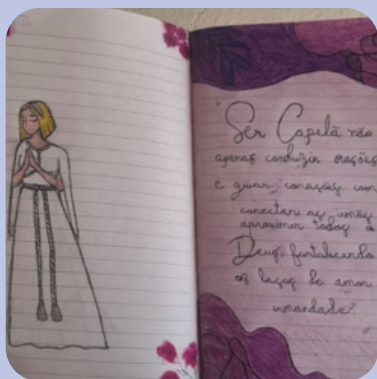 "Ser Capelã não
apenas conduzir orações
é guiar corações com
conectar as irmãs
aproximar todas a
Deus, fortalecendo
os laços de amor
irmandade"